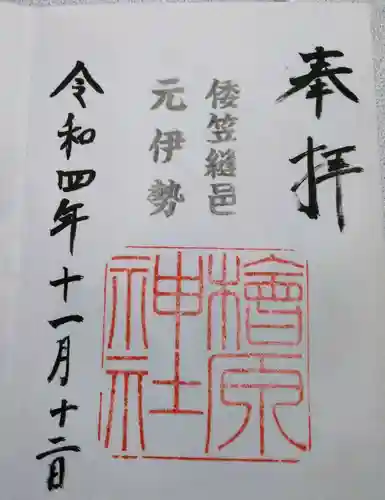 奉拝
倭笠縫邑
元伊勢
檜原
神社
令和四年十一月十二日